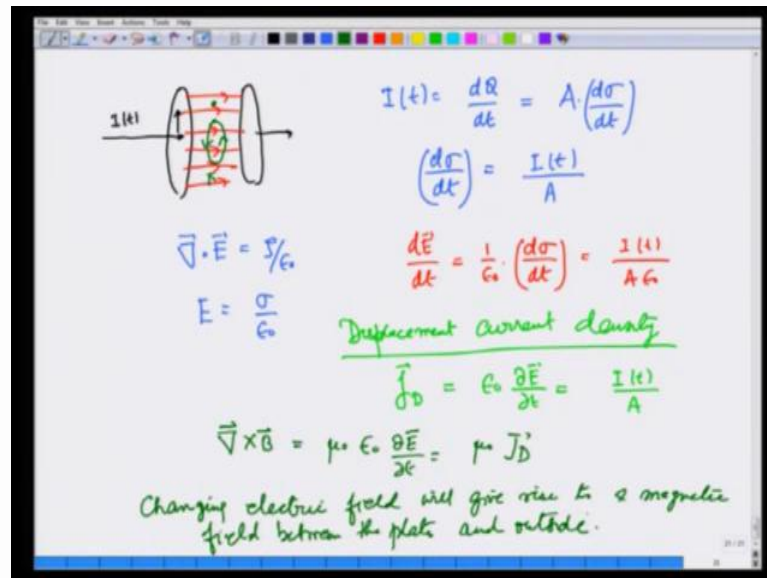 File Edit View Insert Actions Tools Help
I(t)
I(t) = dQ/dt = A·(dσ/dt)
(dσ/dt) = I(t)/A
∇⃗·E⃗ = ρ/ε₀
dE⃗/dt = 1/ε₀ · (dσ/dt) = I(t)/Aε₀
E = σ/ε₀
Displacement current density
J⃗_D = ε₀ ∂E⃗/∂t = I(t)/A
∇⃗×B⃗ = μ₀ ε₀ ∂E⃗/∂t = μ₀ J⃗_D
Changing electric field will give rise to a magnetic
field between the plats and outside.